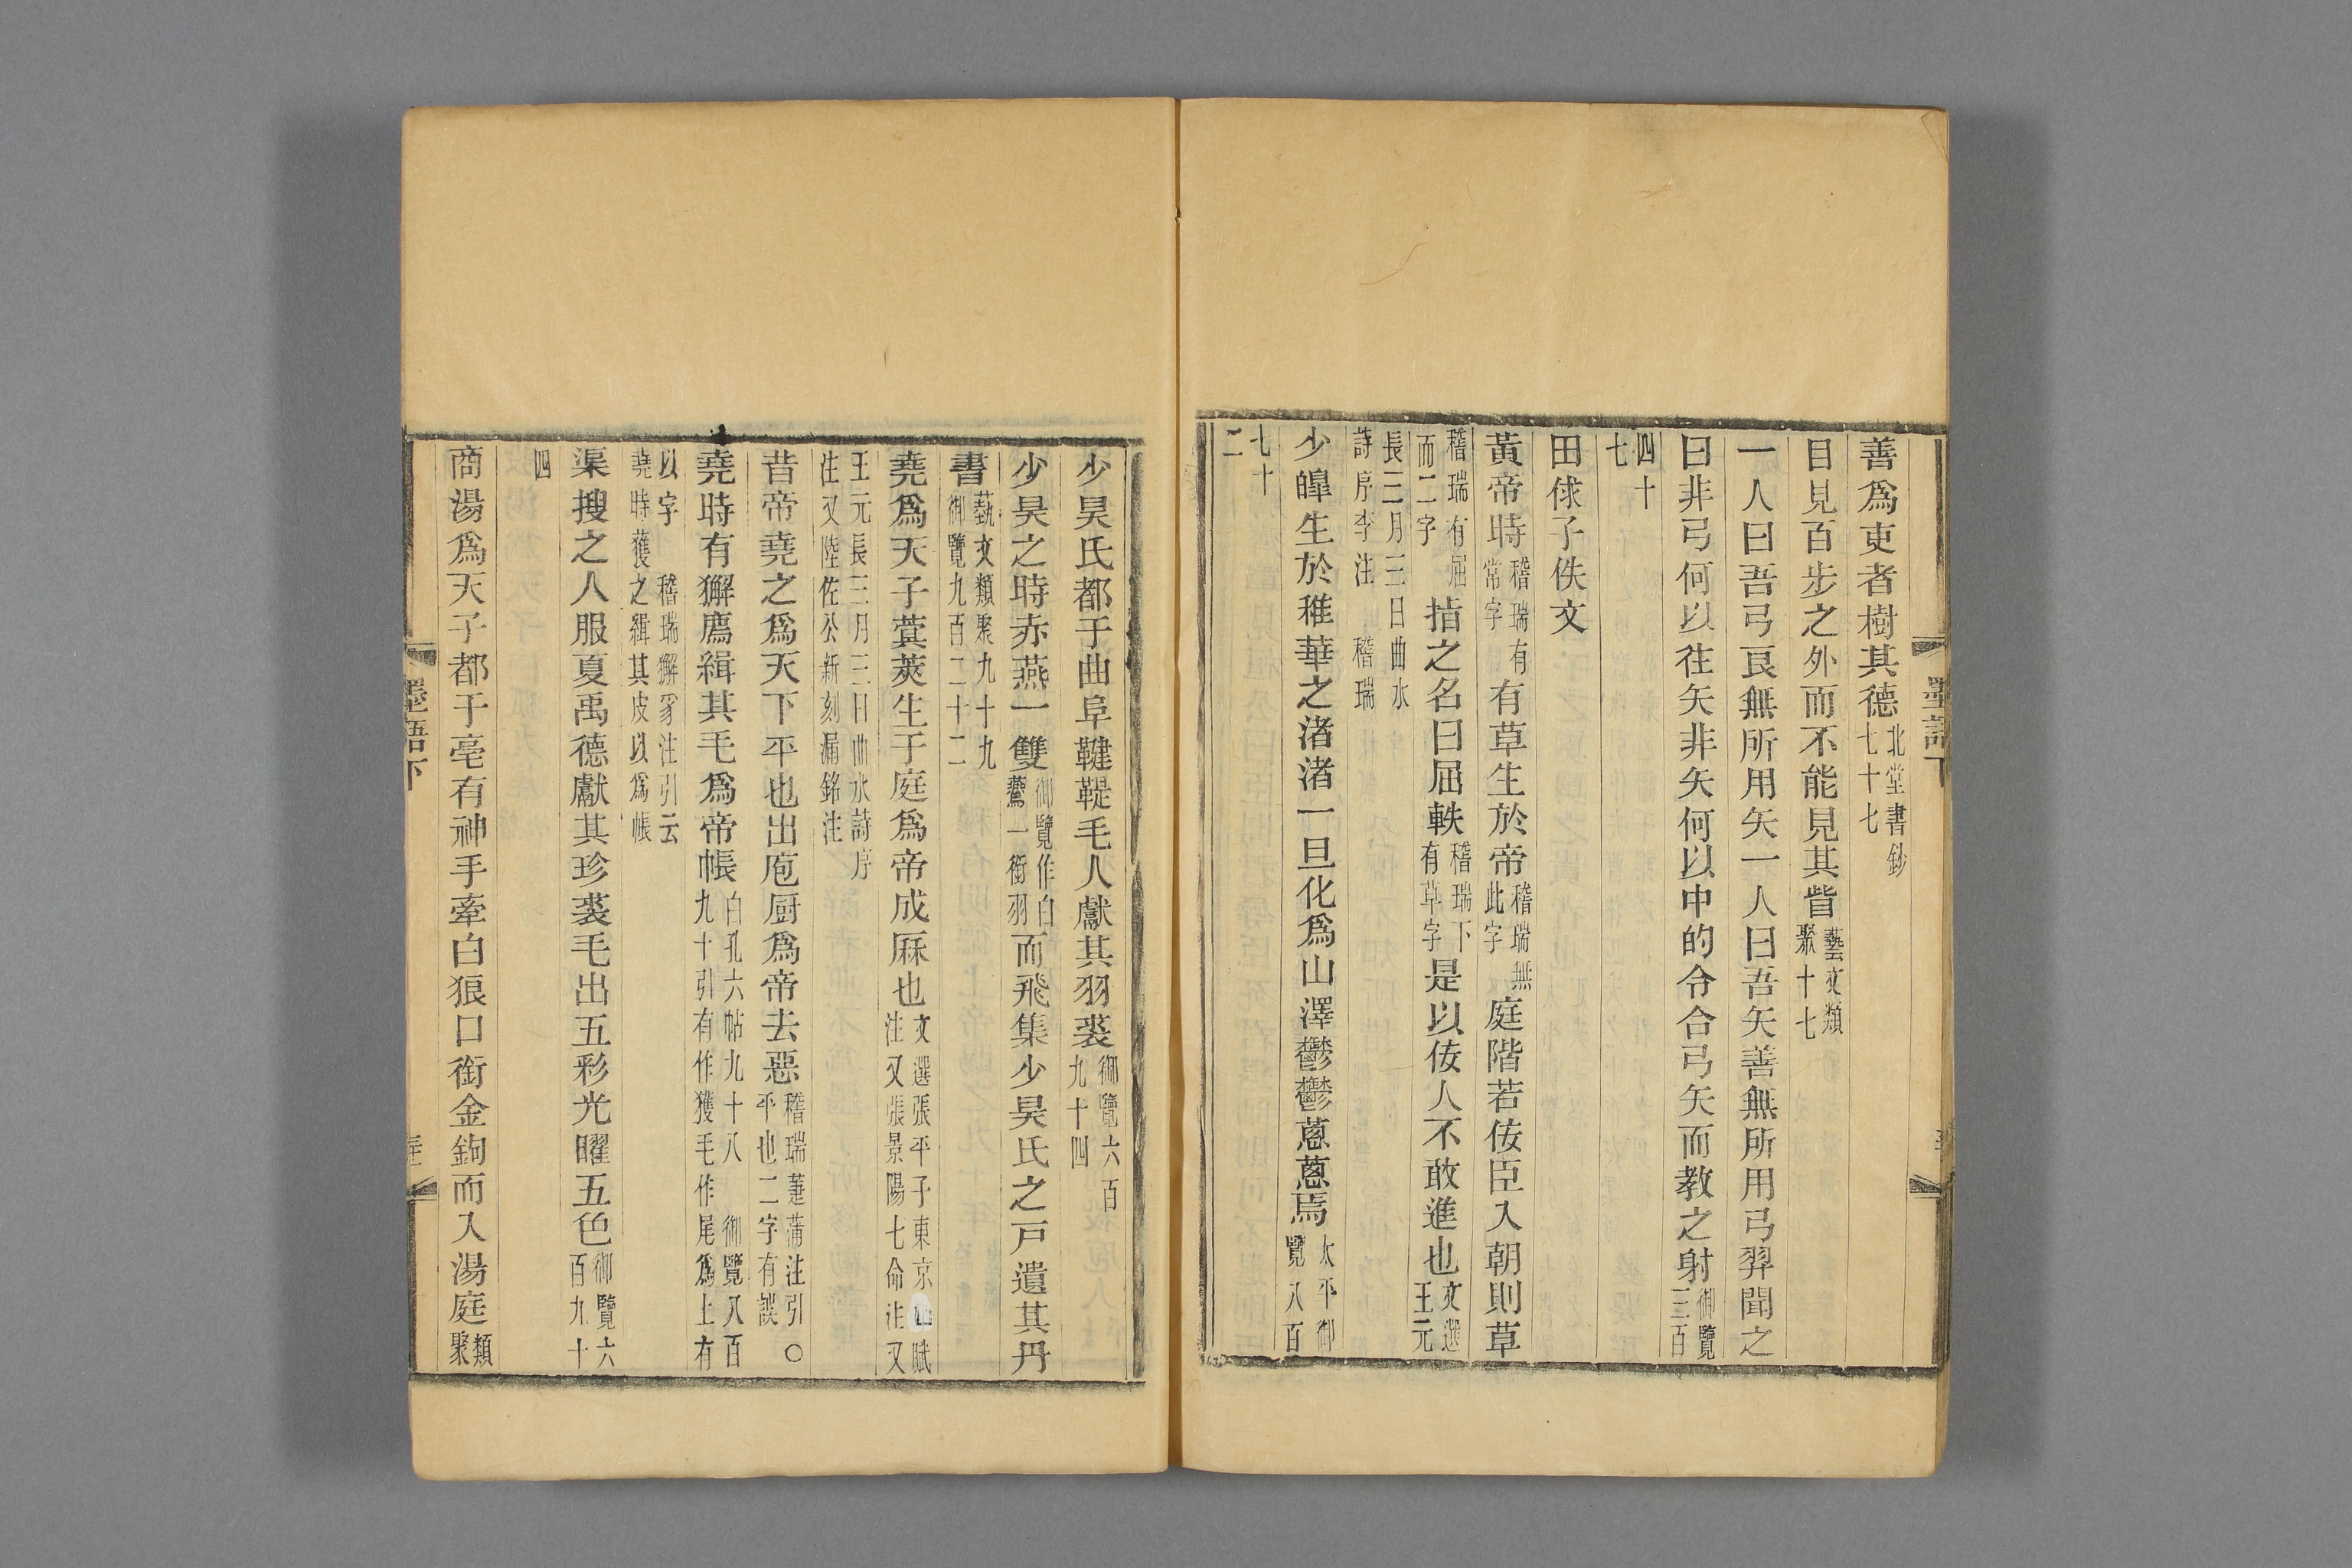 善爲吏者樹其德北堂書鈔七十七
目見百步之外而不能見其眥藝文類聚十七
一人曰吾弓良無所用矢一人曰吾矢善無所用弓羿聞之
曰非弓何以往矢非矢何以中的令合弓矢而教之射御覽三百
四十七
田俅子佚文
黃帝時稽瑞有常字有草生於帝稽瑞無此字庭階若佞臣入朝則草
稽瑞有屈而二字指之名曰屈軼稽瑞下有草字是以佞人不敢進也文選王元
長三月三日曲水詩序李注 稽瑞
少皥生於稚華之渚渚一旦化爲山澤鬱鬱蔥蔥焉太平御覽八百
七十二
墨語下
少昊氏都于曲阜鞬鞮毛人獻其羽裘御覽六百九十四
少昊之時赤燕一雙御覽作白鷰一銜羽而飛集少昊氏之戸遺其丹
書藝文類聚九十九御覽九百二十二
堯爲天子蓂莢生于庭爲帝成厤也文選張平子東京賦注又張景陽七命注又
王元長三月三日曲水詩序注又陸佐公新刻漏銘注
昔帝堯之爲天下平也出庖厨爲帝去惡稽瑞萐蒲注引○平也二字有誤
堯時有獬廌緝其毛爲帝帳白孔六帖九十八 御覽八百九十引有作獲毛作尾爲上有
以字 稽瑞獬豸注引云堯時獲之緝其皮以爲帳
渠搜之人服夏禹德獻其珍裘毛出五彩光曜五色御覽六百九十
四
商湯爲天子都于亳有神手牽白狼口銜金鉤而入湯庭類聚
墨語下